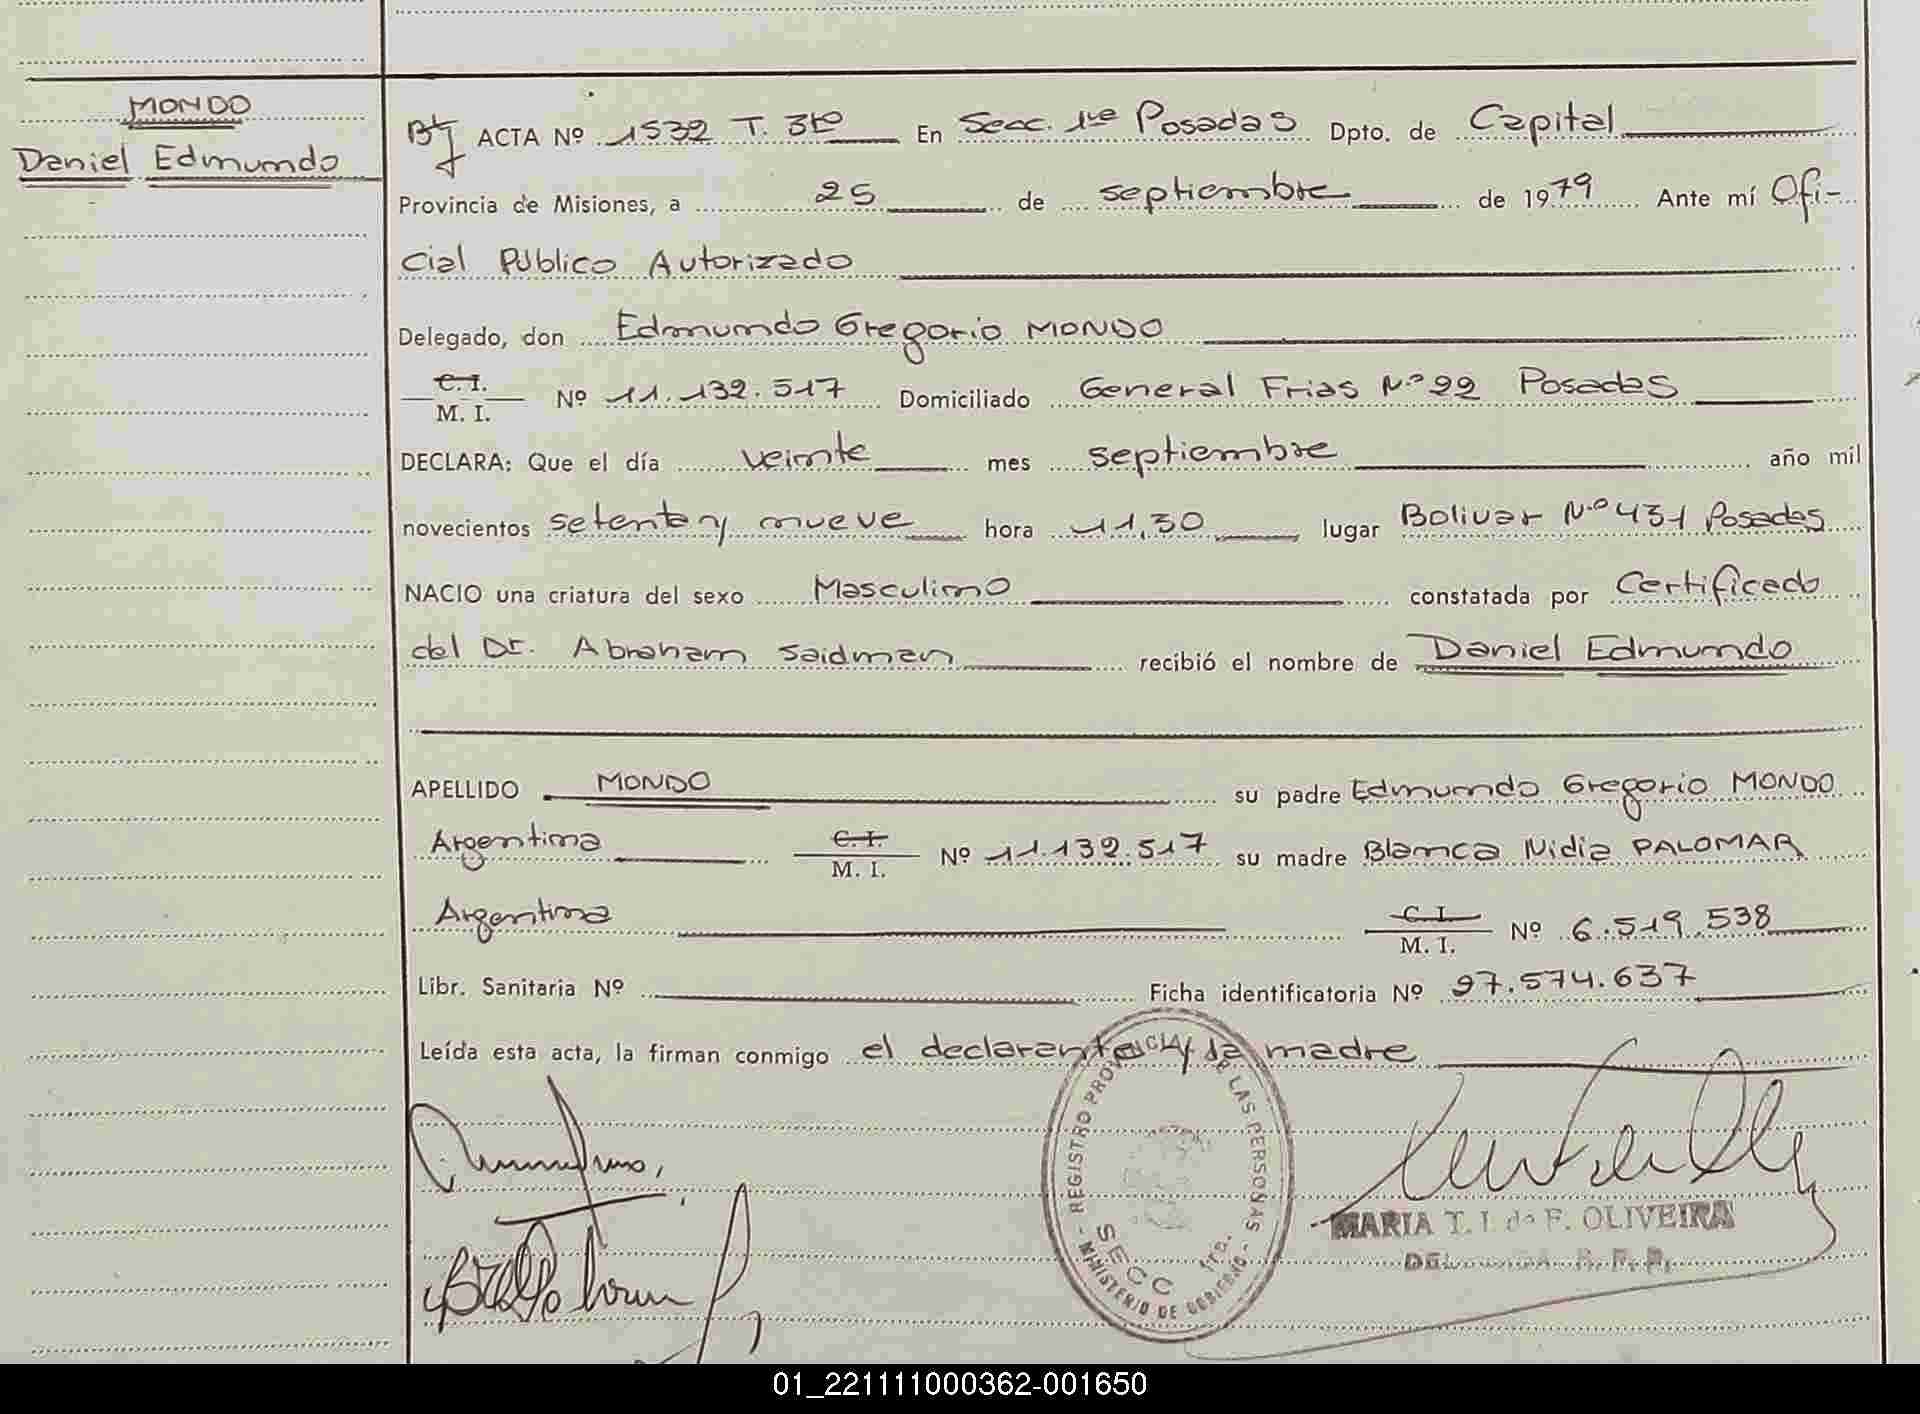 MONDO
Daniel Edmundo
ACTA Nº 1532 T. 3to En Secc. 1ra Posadas Dpto. de Capital
Provincia de Misiones, a 25 de septiembre de 1979 Ante mí Ofi-
cial Público Autorizado
Delegado, don Edmundo Gregorio MONDO
C.I.
M. I. Nº 11.132.517 Domiciliado General Frias Nº 22 Posadas
DECLARA: Que el día veinte mes septiembre año mil
novecientos setenta y nueve hora 11,30 lugar Bolivar Nº 431 Posadas
NACIO una criatura del sexo Masculino constatada por Certificado
del Dr. Abraham Saidman recibió el nombre de Daniel Edmundo
APELLIDO MONDO su padre Edmundo Gregorio MONDO
Argentina C.I.
M. I. Nº 11.132.517 su madre Blanca Nidia PALOMAR
Argentina C.I.
M. I. Nº 6.519.538
Libr. Sanitaria Nº Ficha identificatoria Nº 27.574.637
Leída esta acta, la firman conmigo el declarante y la madre
REGISTRO PROVINCIAL DE LAS PERSONAS
SECC 1ra.
- MINISTERIO DE GOBIERNO -
MARIA T. I. de F. OLIVEIRA
R. P. P.
01_221111000362-001650